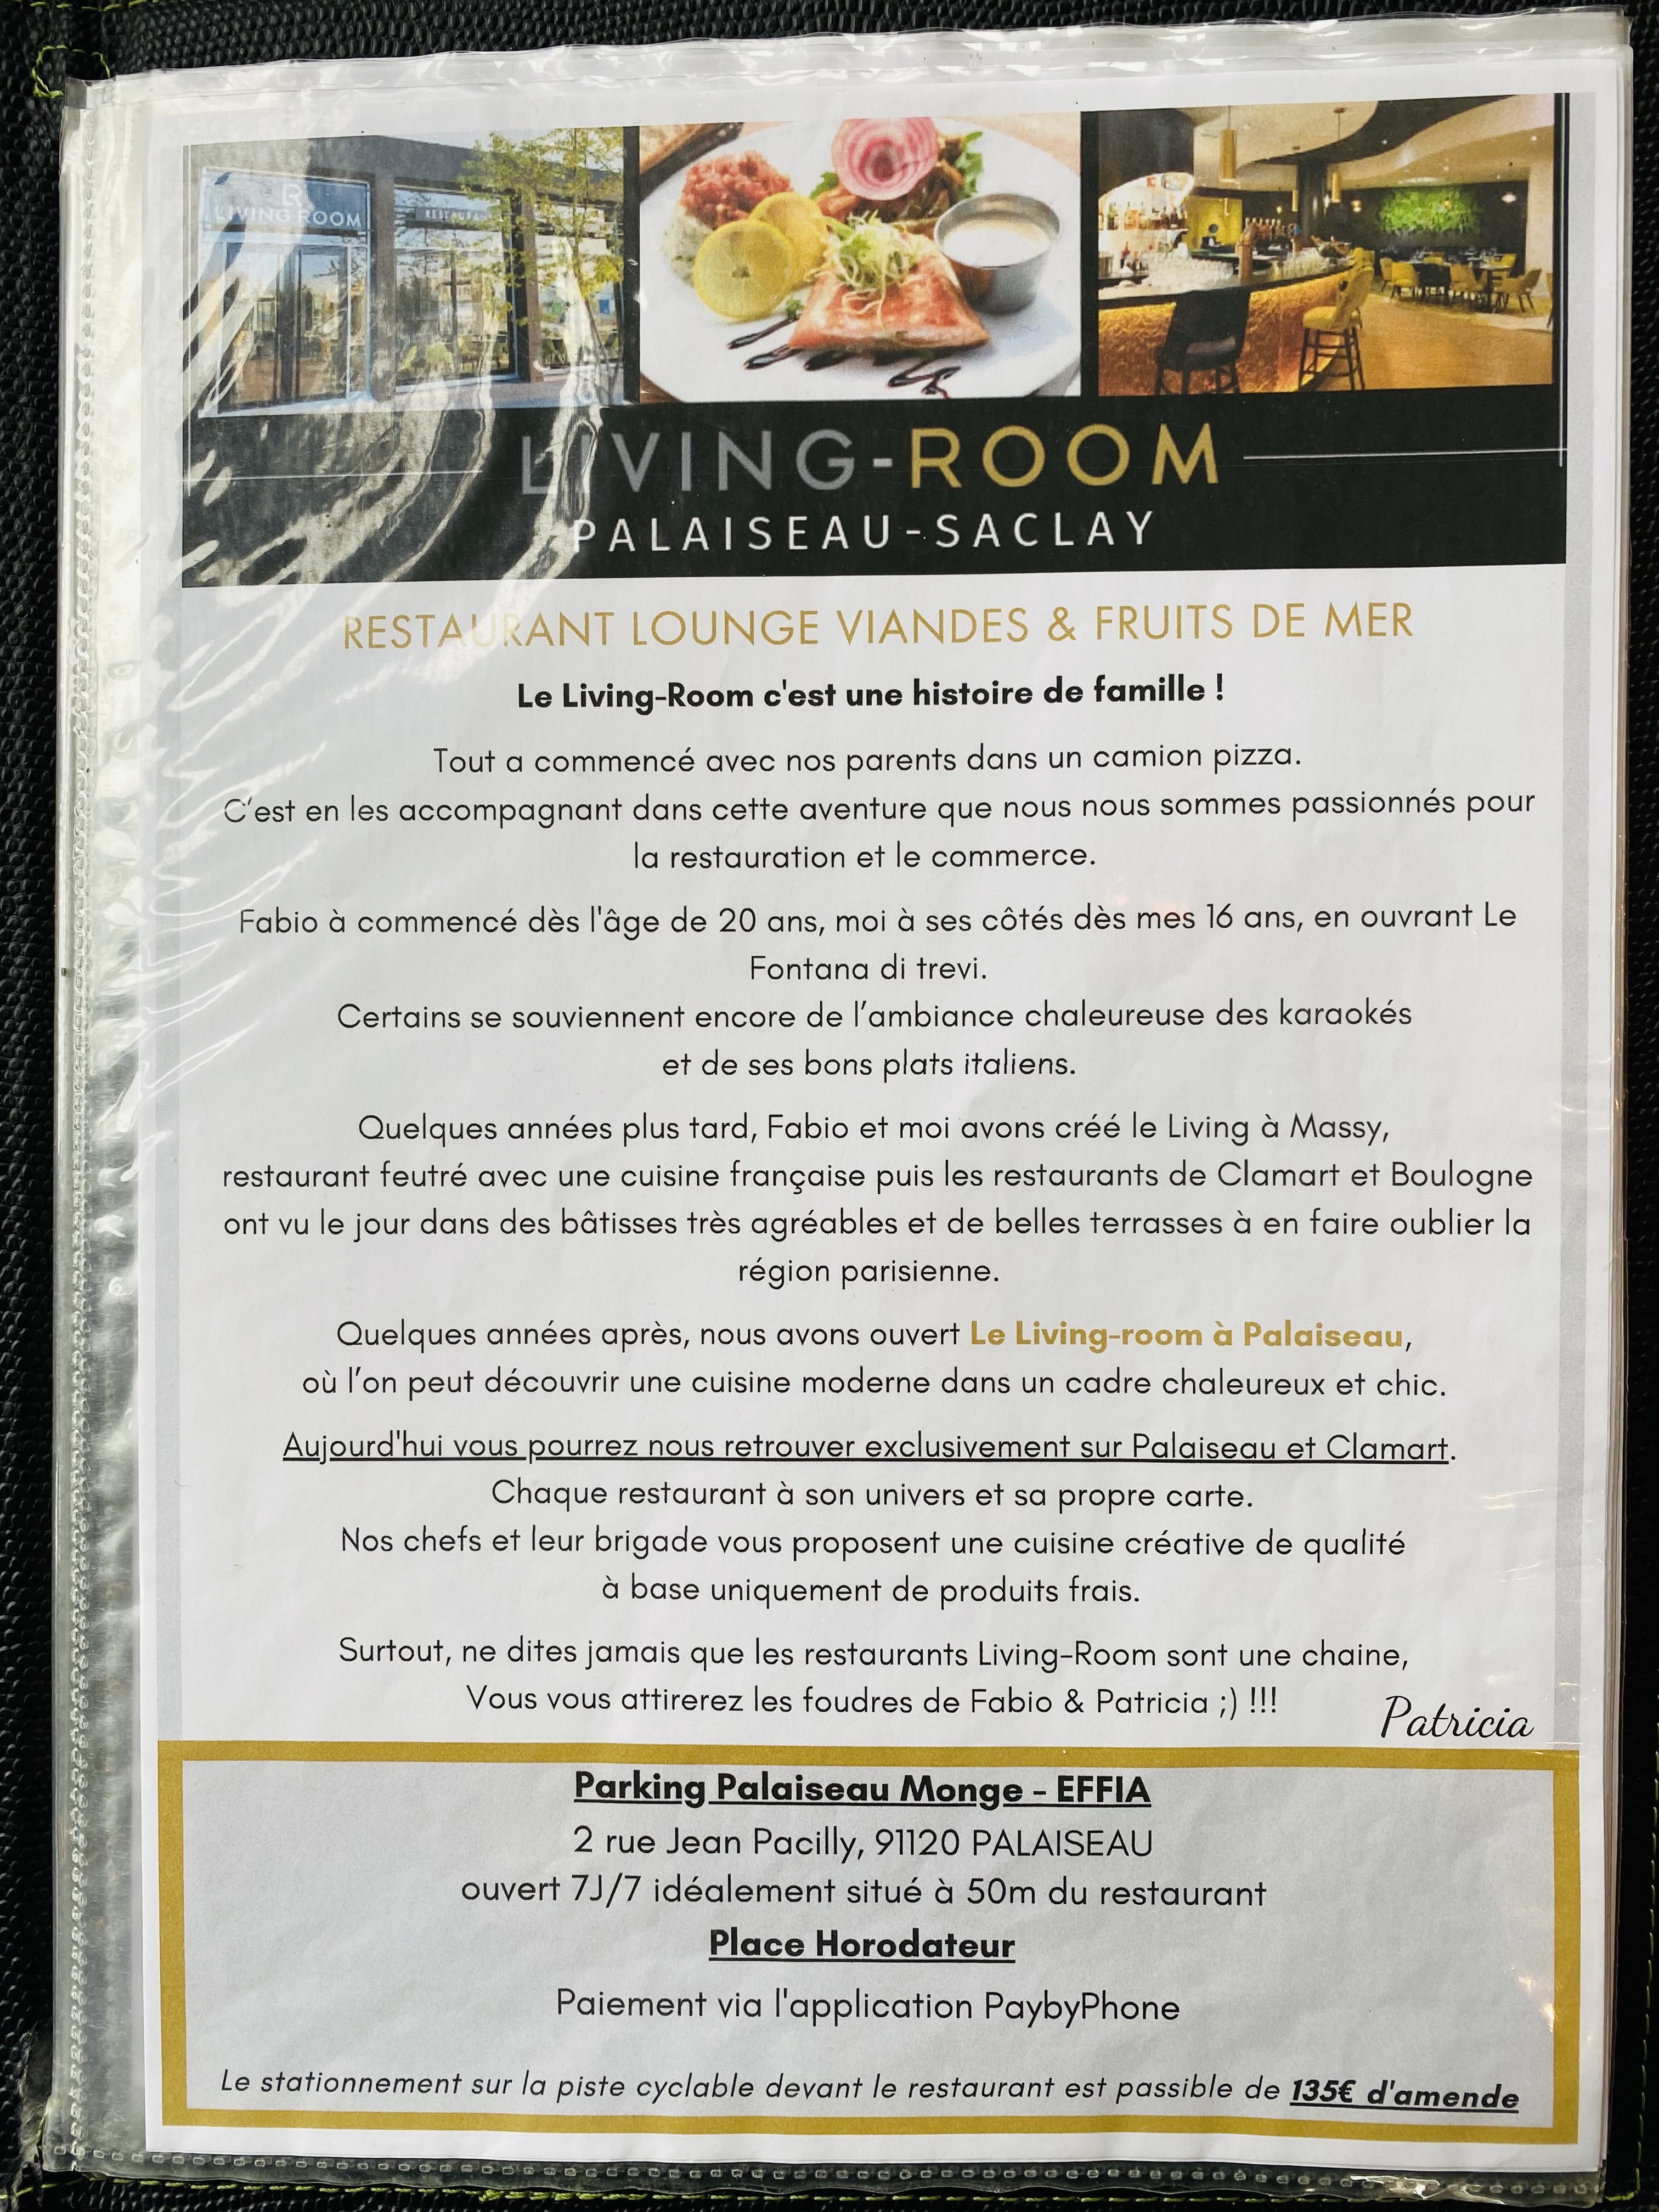 LIVING ROOM
RESTAURANT
LIVING-ROOM
PALAISEAU-SACLAY
RESTAURANT LOUNGE VIANDES & FRUITS DE MER
Le Living-Room c'est une histoire de famille !
Tout a commencé avec nos parents dans un camion pizza.
C’est en les accompagnant dans cette aventure que nous nous sommes passionnés pour
la restauration et le commerce.
Fabio à commencé dès l'âge de 20 ans, moi à ses côtés dès mes 16 ans, en ouvrant Le
Fontana di trevi.
Certains se souviennent encore de l’ambiance chaleureuse des karaokés
et de ses bons plats italiens.
Quelques années plus tard, Fabio et moi avons créé le Living à Massy,
restaurant feutré avec une cuisine française puis les restaurants de Clamart et Boulogne
ont vu le jour dans des bâtisses très agréables et de belles terrasses à en faire oublier la
région parisienne.
Quelques années après, nous avons ouvert Le Living-room à Palaiseau,
où l’on peut découvrir une cuisine moderne dans un cadre chaleureux et chic.
Aujourd'hui vous pourrez nous retrouver exclusivement sur Palaiseau et Clamart.
Chaque restaurant à son univers et sa propre carte.
Nos chefs et leur brigade vous proposent une cuisine créative de qualité
à base uniquement de produits frais.
Surtout, ne dites jamais que les restaurants Living-Room sont une chaine,
Vous vous attirerez les foudres de Fabio & Patricia ;) !!!
Patricia
Parking Palaiseau Monge - EFFIA
2 rue Jean Pacilly, 91120 PALAISEAU
ouvert 7J/7 idéalement situé à 50m du restaurant
Place Horodateur
Paiement via l'application PaybyPhone
Le stationnement sur la piste cyclable devant le restaurant est passible de 135€ d'amende